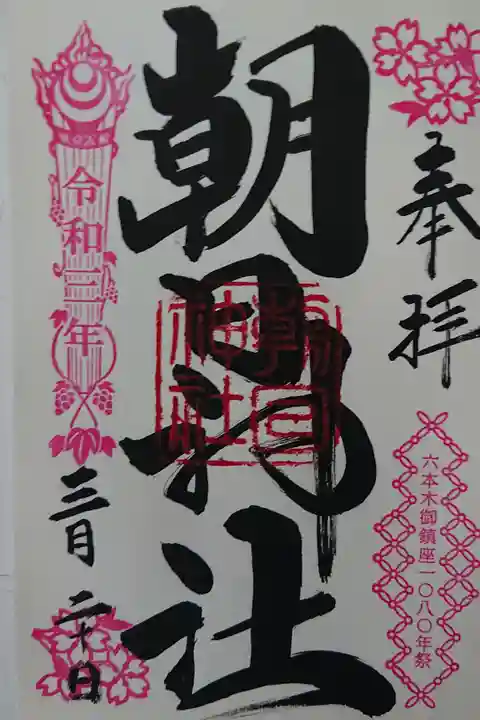 奉拝
六本木御鎮座一〇八〇年祭
朝日神社
朝日神社
令和三年
三月二十日